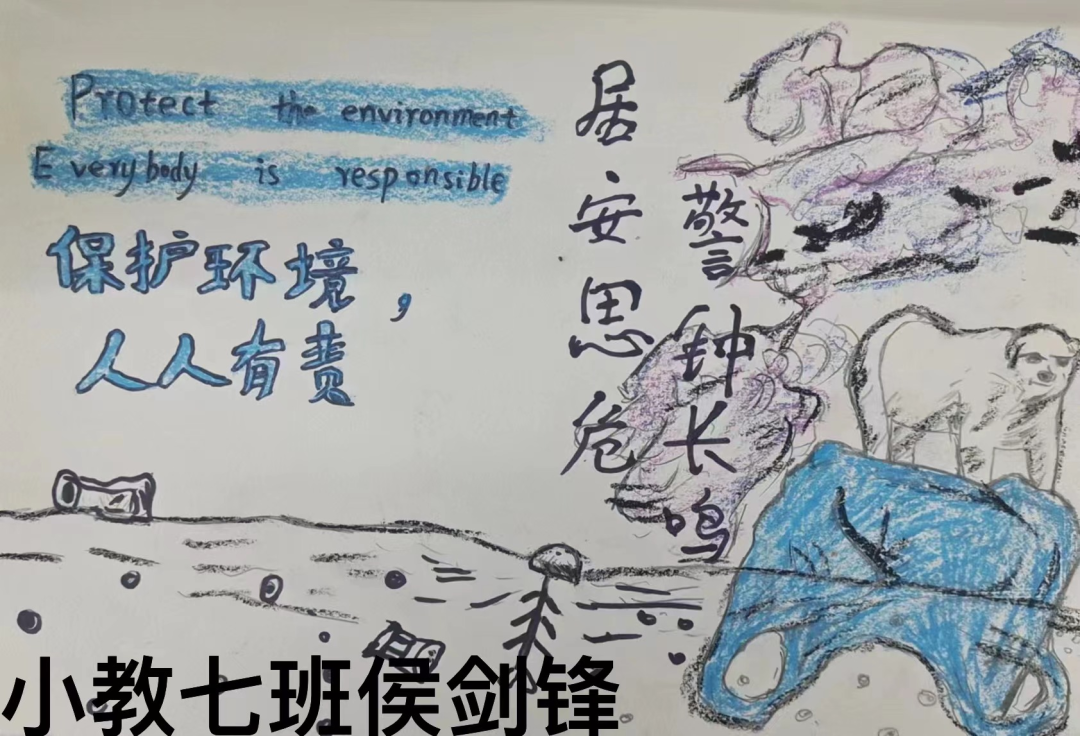 Protect the environment
Everybody is responsible
保护环境,
人人有责
居安思危
警钟长鸣
小教七班侯剑锋